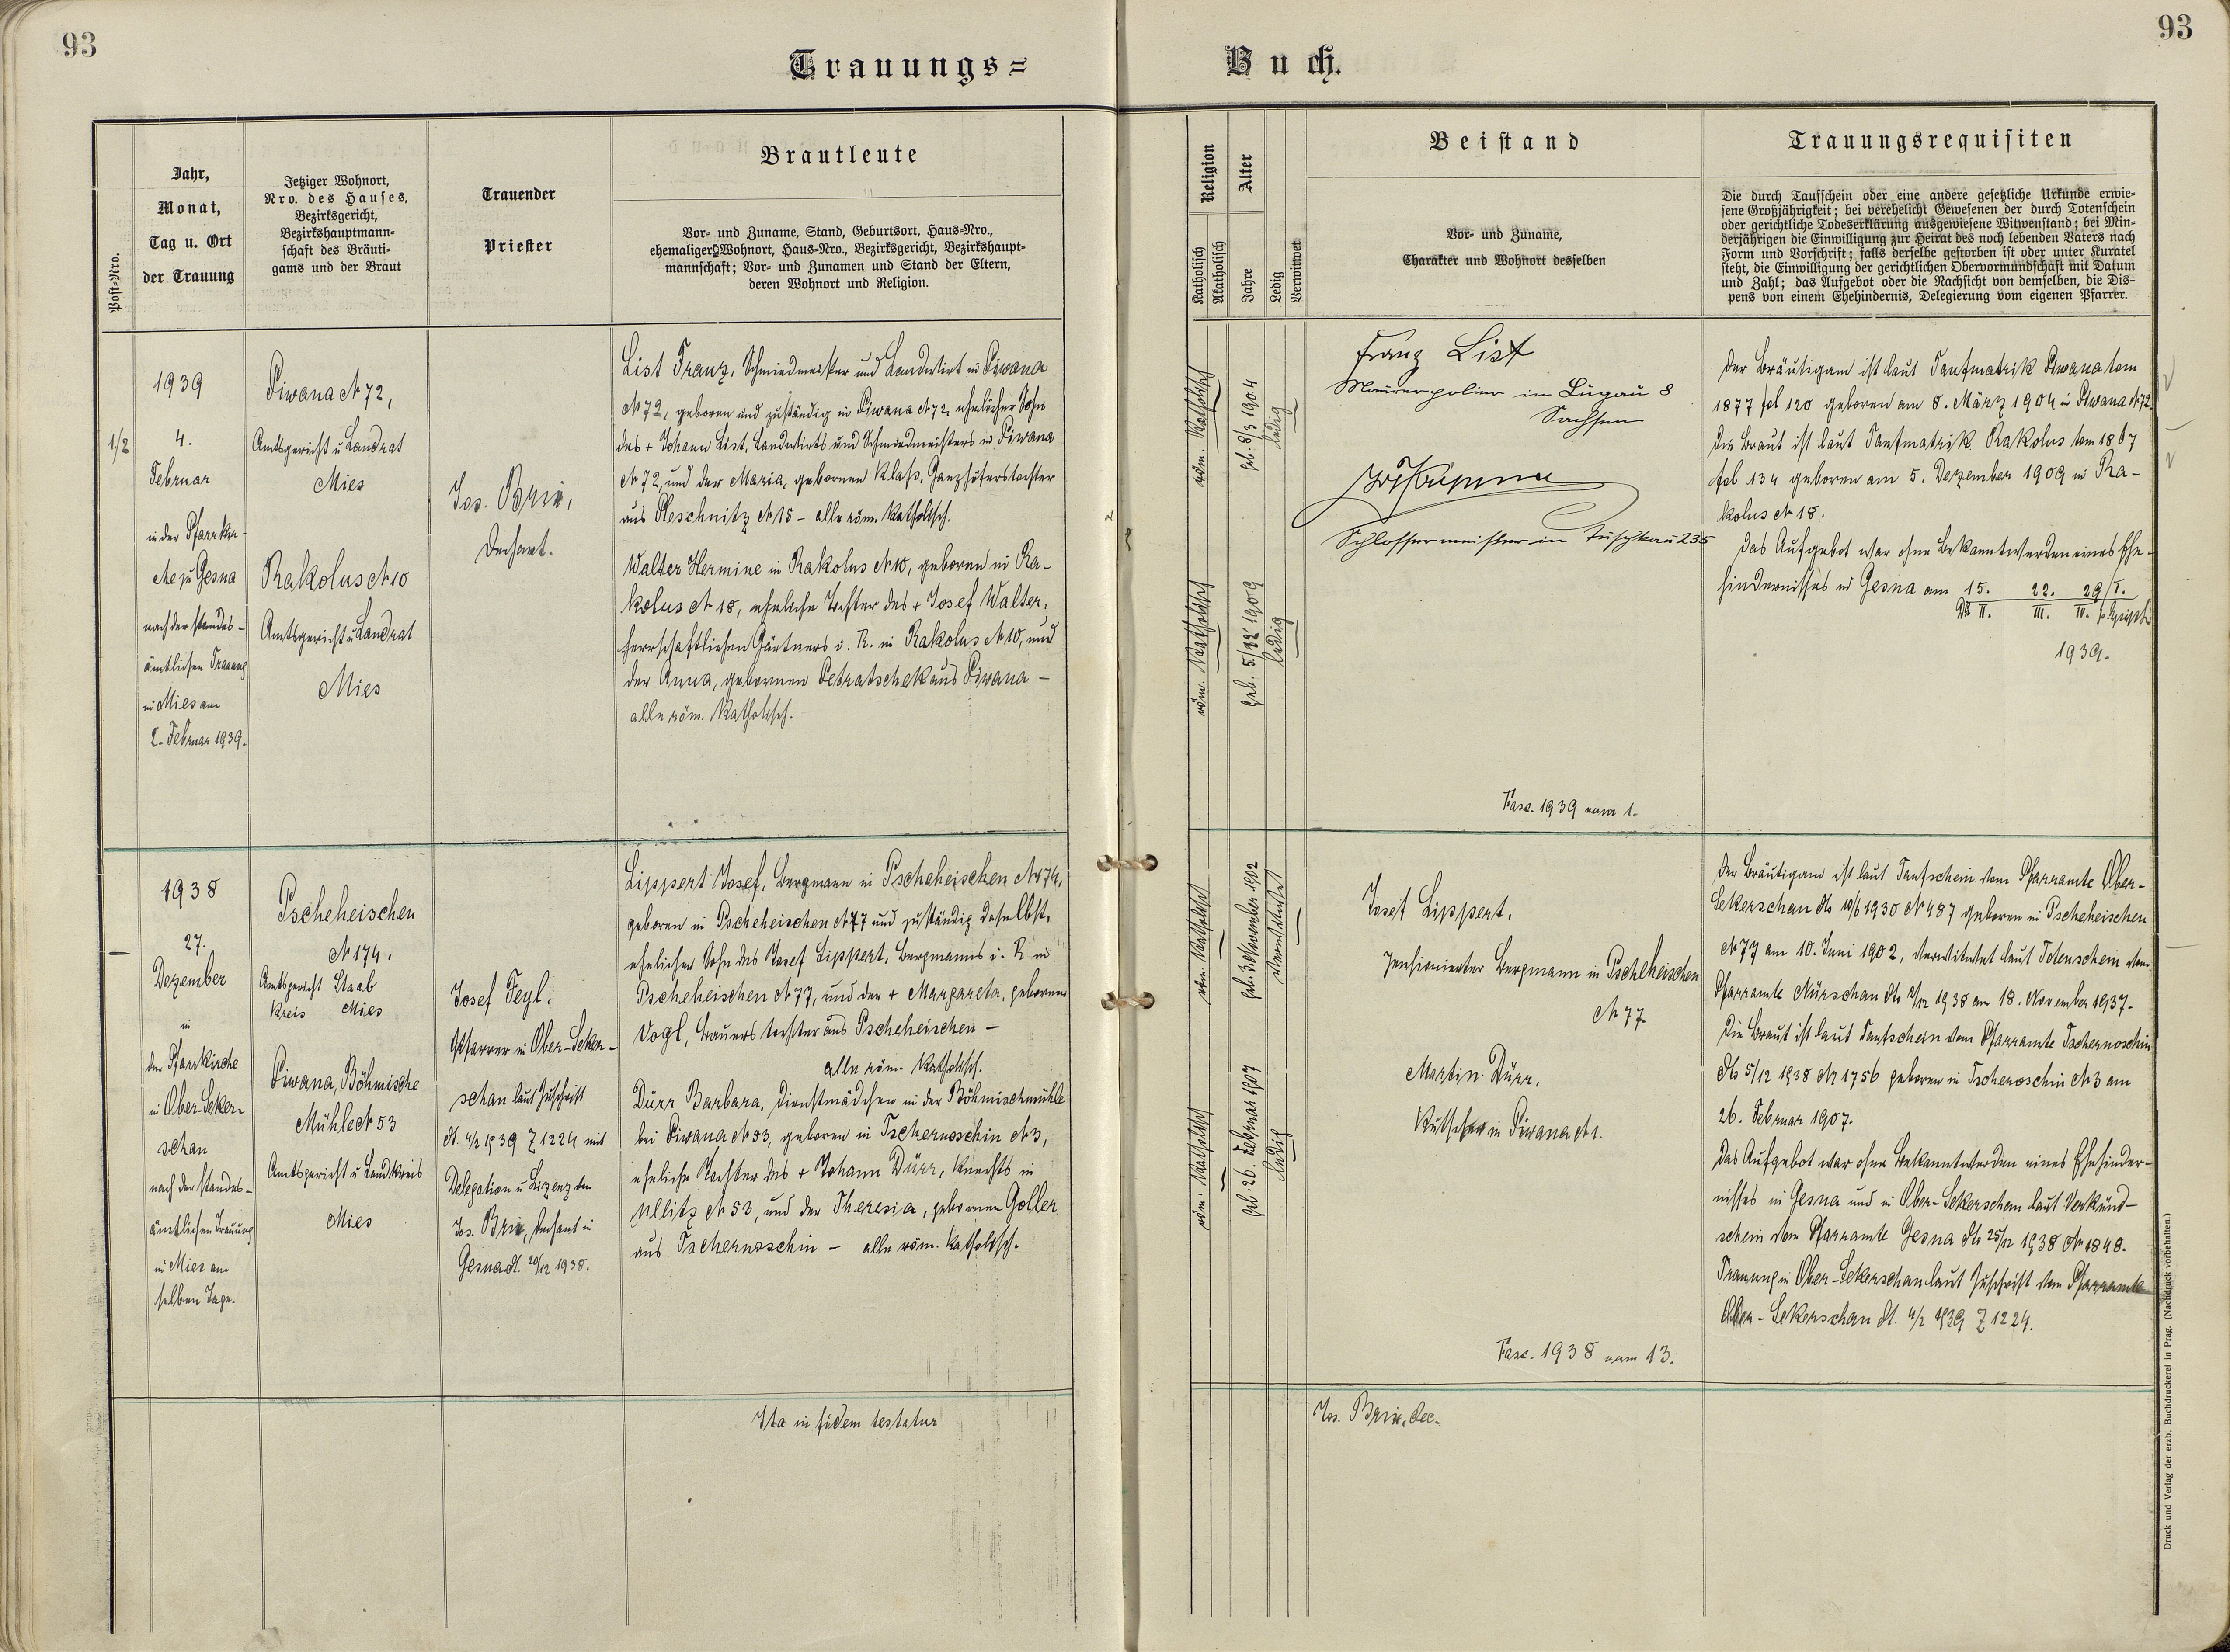 93
93
Trauungs=
Buch.
Post=Nro.
Jahr,
Monat,
Tag u. Ort
der Trauung
Jetziger Wohnort,
Nro. des Hauses,
Bezirksgericht,
Bezirkshauptmann-
schaft des Bräuti-
gams und der Braut
Trauender
Priester
Brautleute
Vor- und Zuname, Stand, Geburtsort, Haus-Nro.,
ehemaliger Wohnort, Haus-Nro., Bezirksgericht, Bezirkshaupt-
mannschaft; Vor- und Zunamen und Stand der Eltern,
deren Wohnort und Religion.
Religion
Katholisch
Akatholisch
Alter
Jahre
Ledig
Verwitwet
Beistand
Vor- und Zuname,
Charakter und Wohnort desselben
Trauungsrequisiten
Die durch Taufschein oder eine andere gesetzliche Urkunde erwie-
sene Großjährigkeit; bei verehelicht Gewesenen der durch Totenschein
oder gerichtliche Todeserklärung ausgewiesene Witwenstand; bei Min-
derjährigen die Einwilligung zur Heirat des noch lebenden Vaters nach
Form und Vorschrift; falls derselbe gestorben ist oder unter Kuratel
steht, die Einwilligung der gerichtlichen Obervormundschaft mit Datum
und Zahl; das Aufgebot oder die Nachsicht von demselben, die Dis-
pens von einem Ehehindernis, Delegierung vom eigenen Pfarrer.
1/2
1939
4.
Februar
in der Pfarrkir-
che zu Gesna
nach der standes-
ämtlichen Trauung
in Mies am
2. Februar 1939.
Piwana № 72,
Amtsgericht u Landrat
Mies
Rakolus № 10
Amtsgericht u Landrat
Mies
Jos. Brix,
Dechant.
List Franz, Schmiedmeister und Landwirt in Piwana
№ 72, geboren und zuständig in Piwana № 72, ehelicher Sohn
des + Johann List, Landwirts und Schmiedmeisters in Piwana
№ 72, und der Maria, gebornen Klaß, Ganzhöferstochter
aus Pleschnitz № 15 - alle röm. katholisch.
Walter Hermine in Rakolus № 10, geboren in Ra-
kolus № 18, eheliche Tochter des + Josef Walter,
herrschaftlichen Gärtners i. R. in Rakolus № 10, und
der Anna, gebornen Petratschek aus Piwana -
alle röm. katholisch.
röm. katholisch
geb. 8/3 1904
ledig
röm. katholisch
geb. 5/12 1909
ledig
Franz List
Maurerpolier in Lugau 8
Sachsen
Schlossermeister in Tuschkau 235
Fasc. 1939 num 1.
Der Bräutigam ist laut Taufmatrik Piwana tom
1877 fol 120 geboren am 8. März 1904 in Piwana № 72.
Die Braut ist laut Taufmatrik Rakolus tom 1867
fol 134 geboren am 5. Dezember 1909 in Ra-
kolus № 18.
Das Aufgebot war ohne Bekanntwerden eines Ehe-
hindernisses in Gesna am 15. 22. 29/I.
II. III. IV. p. Epiph.
1939.
1938
27.
Dezember
in
der Pfarrkirche
in Ober-Seker-
schan
nach der standes-
ämtlichen Trauung
in Mies am
selben Tage.
Pscheheischen
№ 174.
Amtsgericht Staab
Kreis Mies
Piwana, Böhmische
Mühle № 53
Amtsgericht u Landkreis
Mies
Josef Feyl,
Pfarrer in Ober-Seker-
schan laut Zuschrift
dt. 4/2 1939 Z 1224 mit
Delegation u Lizenz von
Jos. Brix, Dechant in
Gesna dt. 26/12 1938.
Lippert Josef, Bergmann in Pscheheischen № 174,
geboren in Pscheheischen № 77 und zuständig daselbst,
ehelicher Sohn des Josef Lippert, Bergmanns i. R. in
Pscheheischen № 77, und der + Margareta, gebornen
Vogl, Bauerstochter aus Pscheheischen -
alle röm. katholisch.
Dürr Barbara, Dienstmädchen in der Böhmischmühle
bei Piwana № 53, geboren in Tschernoschin № 3,
eheliche Tochter des + Johann Dürr, Knechts in
Ullitz № 53, und der Theresia, gebornen Goller
aus Tschernoschin - alle röm. katholisch.
röm. katholisch
verwitwet
röm. katholisch
geb. 26. Februar 1907
ledig
Josef Lippert,
pensionierter Bergmann in Pscheheischen
№ 77.
Martin Dürr,
Kutscher in Piwana № 1.
Fasc. 1938 num 13.
Der Bräutigam ist laut Taufschein vom Pfarramte Ober-
Sekerschan dto 10/6 1930 № 487 geboren in Pscheheischen
№ 77 am 10. Juni 1902, verwitwet laut Totenschein vom
Pfarramte Nürschan dto 2/12 1938 am 18. November 1937.
Die Braut ist laut Taufschein vom Pfarramte Tschernoschin
dto 5/12 1938 № 1756 geboren in Tschernoschin № 3 am
26. Februar 1907.
Das Aufgebot war ohne Bekanntwerden eines Ehehinder-
nisses in Gesna und in Ober-Sekerschan laut Verkünd-
schein vom Pfarramte Gesna dto 25/12 1938 № 1848.
Trauung in Ober-Sekerschan laut Zuschrift vom Pfarramte
Ober-Sekerschan dt. 4/2 1939 Z 1224.
Ita in fidem testatur
Jos. Brix, dec.
Druck und Verlag der erzb. Buchdruckerei in Prag. (Nachdruck vorbehalten.)